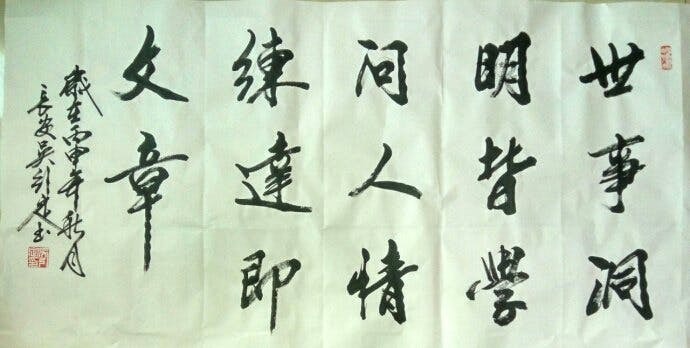 世事洞
明皆学
问人情
練達即
文章
歲在丙申年秋月
長安吳引来书